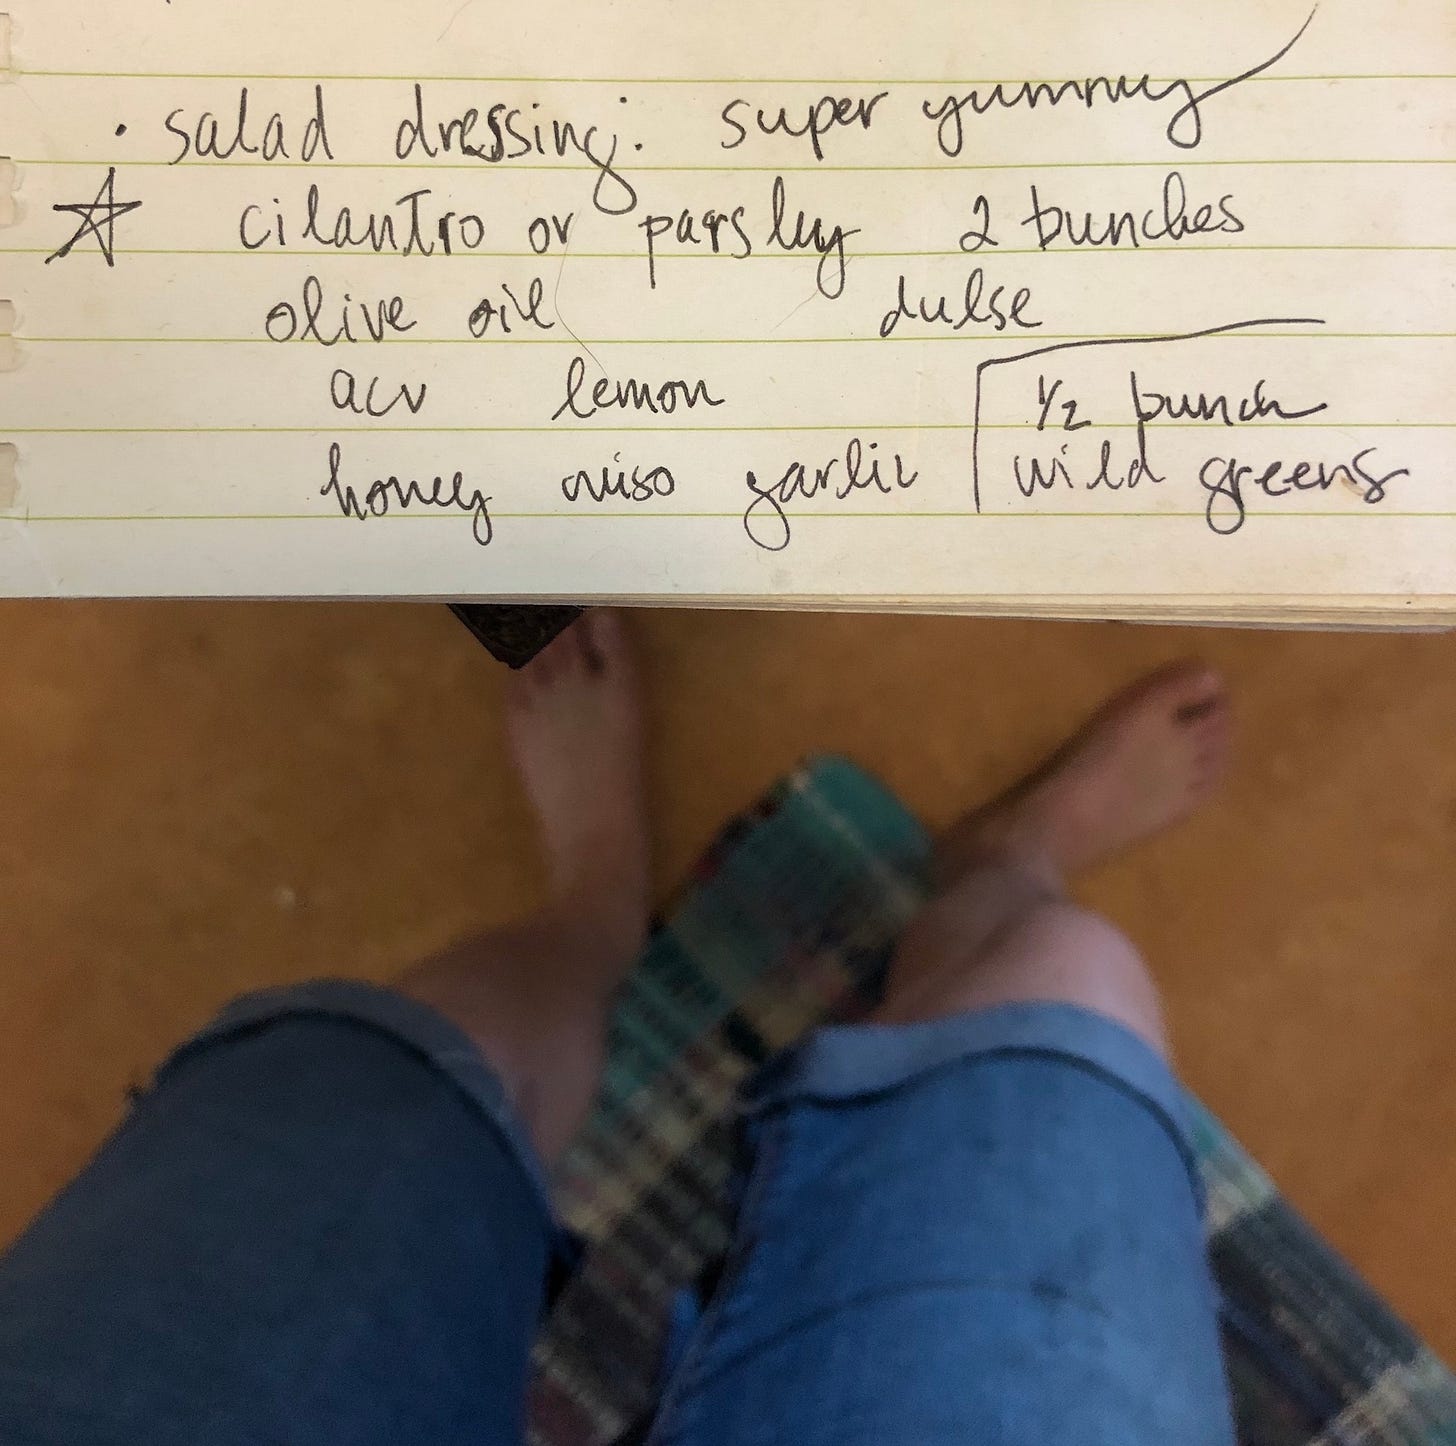 • salad dressing: super yummy
☆ cilantro or parsley 2 bunches
olive oil dulse
acv lemon 1/2 bunch
honey miso garlic wild greens